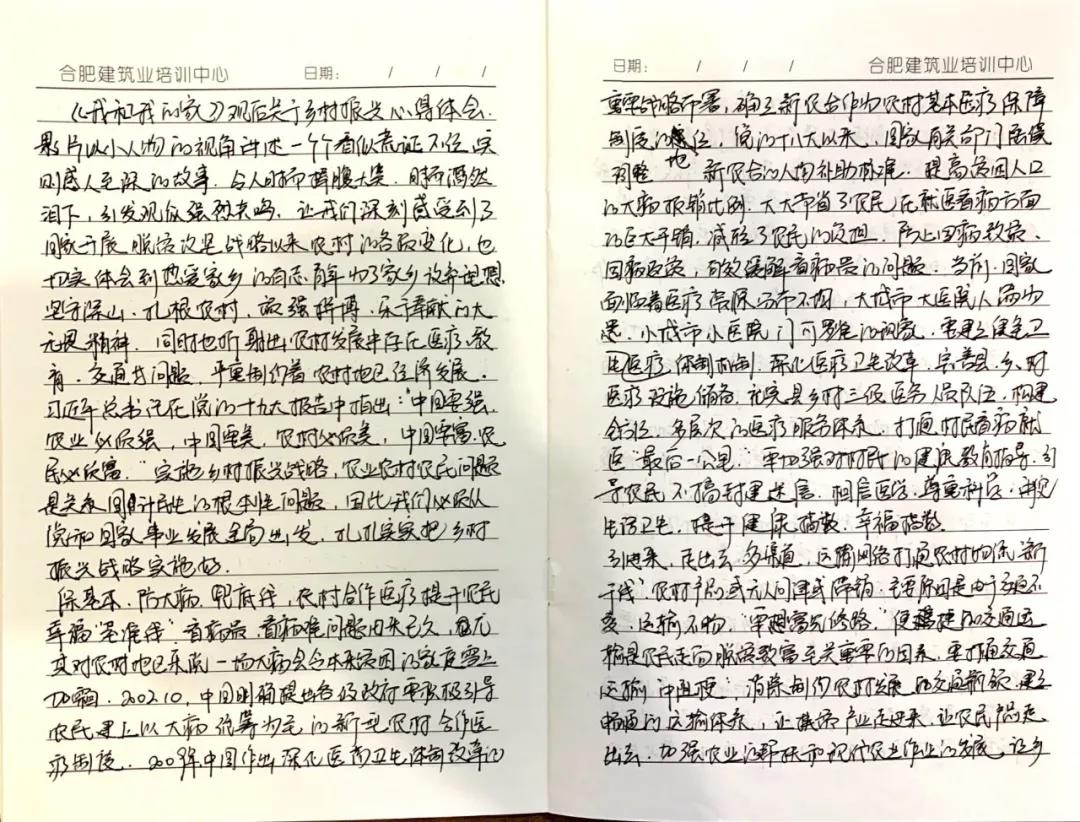 合肥建筑业培训中心 日期: / / /
《我和我的家》观后关于乡村振兴心得体会.
影片以小人物的视角讲述一个个看似荒诞不经,实
则感人至深的故事.令人时而捧腹大笑.时而潸然
泪下,引发观众强烈共鸣.让我们深刻感受到了
国家开展脱贫攻坚战略以来农村的各方面变化,也
切实体会到热爱家乡的有志青年为了家乡放弃理想
坚守深山.扎根农村,顽强拼搏.乐于奉献的大
无畏精神.同时也折射出农村发展中存在医疗.教
育.交通等问题,严重制约着农村地区经济发展.
习近平总书记在党的十九大报告中指出:"中国要强,
农业必须强,中国要美,农村必须美,中国要富,农
民必须富."实施乡村振兴战略,农业农村农民问题
是关系国计民生的根本性问题,因此我们必须从
党和国家事业发展全局出发,扎扎实实把乡村
振兴战略实施好.
保基本.防大病.兜底线,农村合作医疗提升农民
幸福"基准线"看病贵.看病难问题由来已久,尤
其对农村地区来说一场大病会令本来贫困的家庭雪上
加霜.2002.10,中国明确提出各级政府要积极引导
农民建立以大病统筹为主的新型农村合作医
疗制度.2009年中国作出深化医药卫生体制改革的
日期: / / / 合肥建筑业培训中心
重要战略部署,确立新农合作为农村基本医疗保障
制度的地位,党的十八大以来,国家有关部门连续
调整新农合的人均补助标准.提高贫困人口
的大病报销比例.大大节省了农民在就医看病方面
的巨大开销,减轻了农民的负担.防止因病致贫、
因病返贫,有效缓解看病贵的问题.当前,国家
面临着医疗资源分布不均,大城市大医院人满为
患.小城市小医院门可罗雀的现象.要建立健全卫
生医疗体制机制.深化医疗卫生改革.完善县、乡、村
医疗设施储备.补充县乡村三级医务人员队伍,构建
全方位.多层次的医疗服务体系.打通村民看病就
医"最后一公里."要加强对村民的健康教育指导,引
导农民不搞封建迷信.相信医学.尊重科学.讲究
生活卫生.提升健康指数.幸福指数.
引进来.走出去.多渠道,运输网络打通农村物流"新
干线"农村产品或无人问津或降销.主要原因是由于交通不
变.运输不畅."要想富先修路."便捷的交通运
输是农民走向脱贫致富至关重要的因素.要打通交通
运输"中梗阻"消除制约农村发展的交通瓶颈.建立
畅通的运输体系,让扶贫产业走进来.让农民产品走
出去.加强农业的科技和现代农业作业的发展.让乡